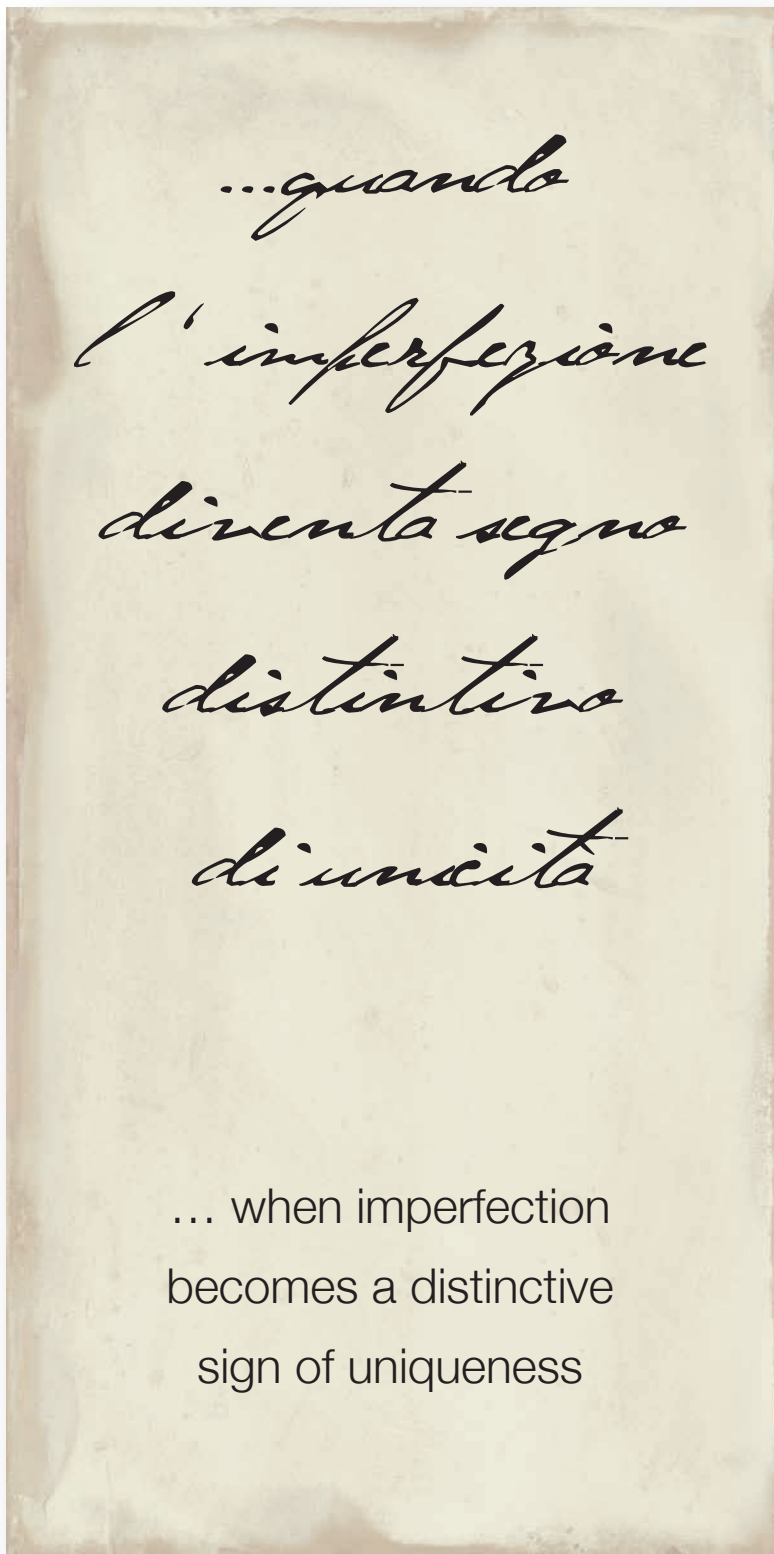 ...quando
l'imperfezione
diventa segno
distintivo
di unicità
… when imperfection
becomes a distinctive
sign of uniqueness